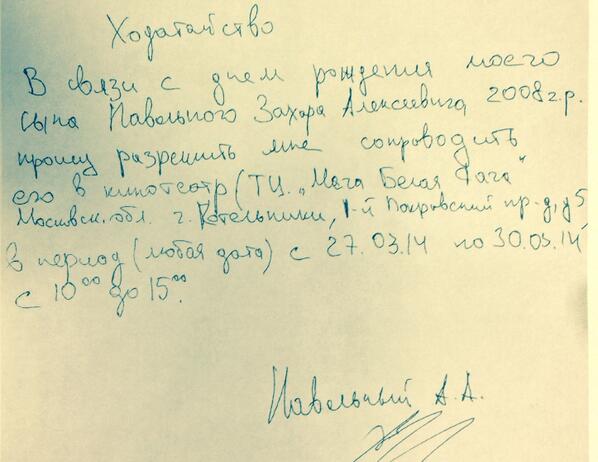 Ходатайство
В связи с днем рождения моего
сына Навального Захара Алексеевича 2008г.р.
прошу разрешить мне сопроводить
его в кинотеатр (ТЦ. „Мега Белая Дача"
Московск. обл. г. Котельники, 1-й Покровский пр-д, д5
в период (любая дата) с 27.03.14 по 30.03.14
с 10⁰⁰ до 15⁰⁰.
Навальный А.А.